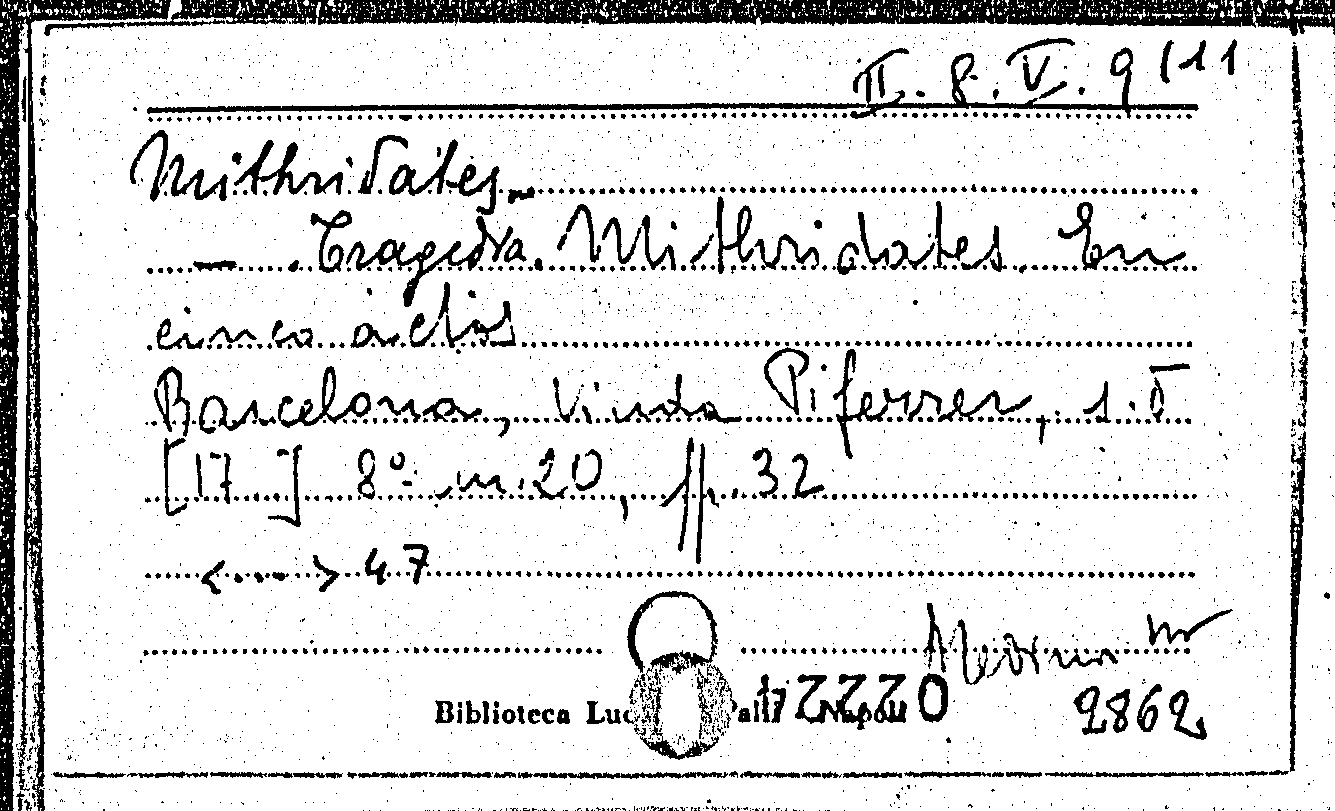 II. 8. V. 9/11
Mithridates.
— . Tragedia. Mithridates. En
cinco actos
Barcelona, Viuda Piferrer, s.d
[17..] 8º m. 20, pp. 32
<....> 47
Biblioteca Napoli
2862